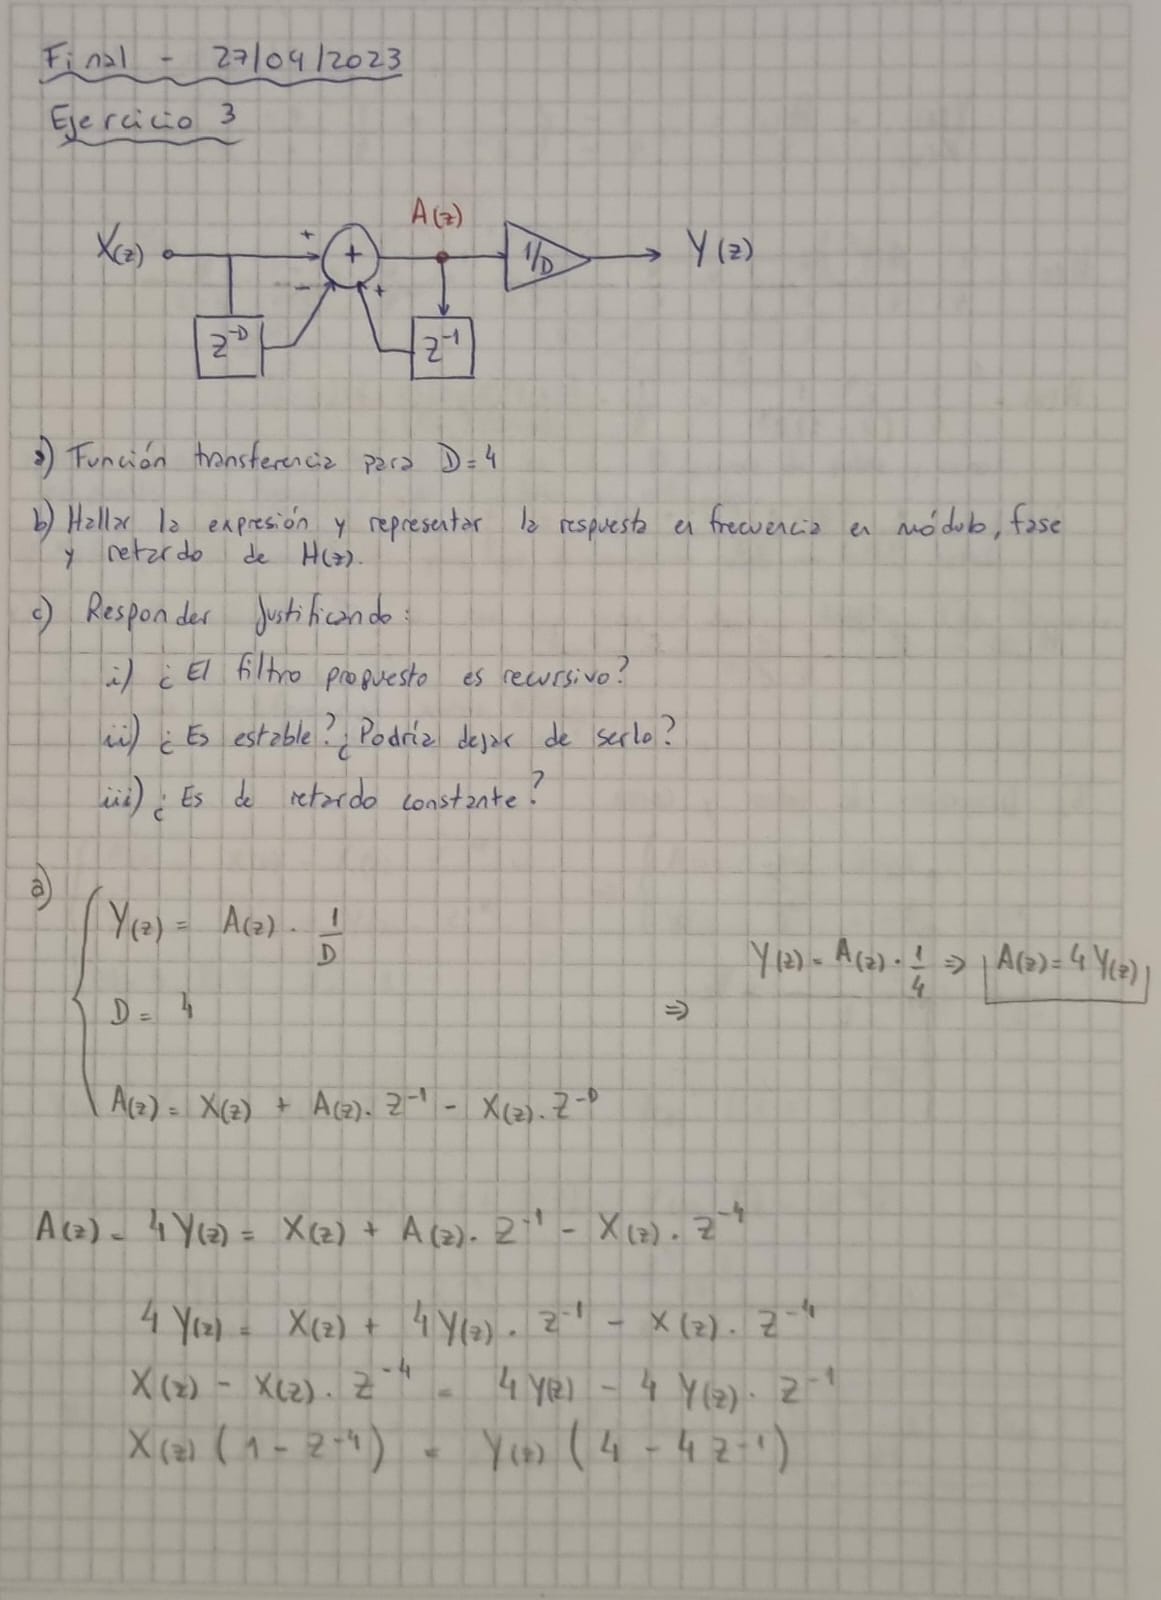 Final - 27/04/2023
Ejercicio 3
A(z)
X(z) + + 1/D Y(z)
- +
z^-D z^-1
a) Función transferencia para D=4
b) Hallar la expresión y representar la respuesta en frecuencia en módulo, fase
y retardo de H(z).
c) Responder justificando:
i) ¿El filtro propuesto es recursivo?
ii) ¿Es estable? ¿Podría dejar de serlo?
iii) ¿Es de retardo constante?
a)
Y(z) = A(z) . 1/D
Y(z) = A(z) . 1/4 ⇒ A(z) = 4 Y(z)
D = 4 ⇒
A(z) = X(z) + A(z). z^-1 - X(z). z^-D
A(z) = 4 Y(z) = X(z) + A(z). z^-1 - X(z). z^-4
4 Y(z) = X(z) + 4 Y(z). z^-1 - X(z). z^-4
X(z) - X(z). z^-4 = 4 Y(z) - 4 Y(z). z^-1
X(z) (1 - z^-4) = Y(z) (4 - 4 z^-1)